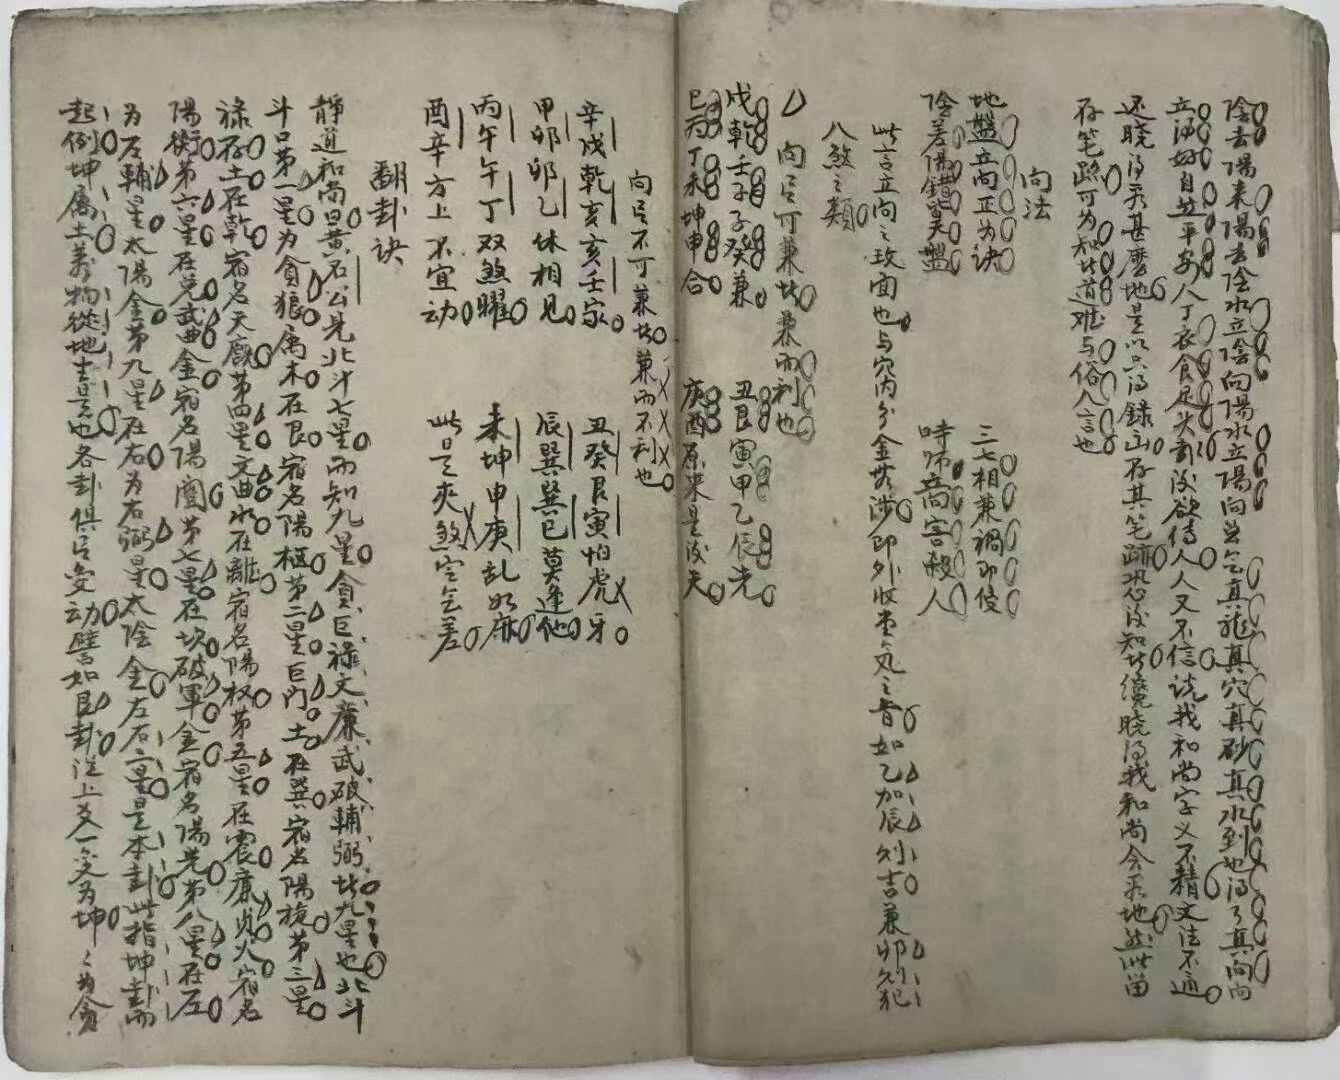 陰去陽來陽去陰水立陰向陽水立陽向並乞真龍真穴真砂真水到也得了真向向
立得好自然平安人丁衣食足矣卦後欲傳人人又不信說我和尚字义不精文法不通
还曉得看甚麼地是以只得錄出存其笔跡恐後知此纔曉得我和尚会看地然此留
存笔踪可为知此道难与俗人言也
向法
地盤立向正为诀
三七相兼禍即侵
陰差陽錯是天盤
時师立向害殺人
此言立向之玫面也与穴内分金無涉即外收堂气之音如乙加辰则吉兼卯则犯
八煞之類
向与可兼此兼而利也
戊乾壬子子癸兼
丑艮寅甲乙辰先
巳丙丁未坤申合
庚酉原來是後夫
向与不可兼此兼而不利也
辛戌乾亥亥壬家
丑癸艮寅怕虎牙
甲卯卯乙休相見
辰巽巽巳莫逢他
丙午午丁双煞曜
未坤申庚乱如麻
酉辛方上不宜动
此是夾煞定乞差
翻卦诀
靜道和尚曰黄石公見北斗七星而知九星貪巨祿文廉武破輔弼此九星也北斗
斗口第一星为貪狼属木在艮宿名陽樞第二星巨門土在巽宿名陽旋第三星
祿存土在乾宿名天厥第四星文曲水在離宿名陽权第五星在震廉貞火宿名
陽衡第六星在兌武曲金宿名陽闓第七星在坎破軍金宿名陽光第八星在左
为左輔星太陽金第九星在右为右弼星太陰金左右二星是本卦此指坤卦而
起例坤属土萬物從地生是也各卦俱与变动譬如艮卦從上爻一变为坤坤为貪